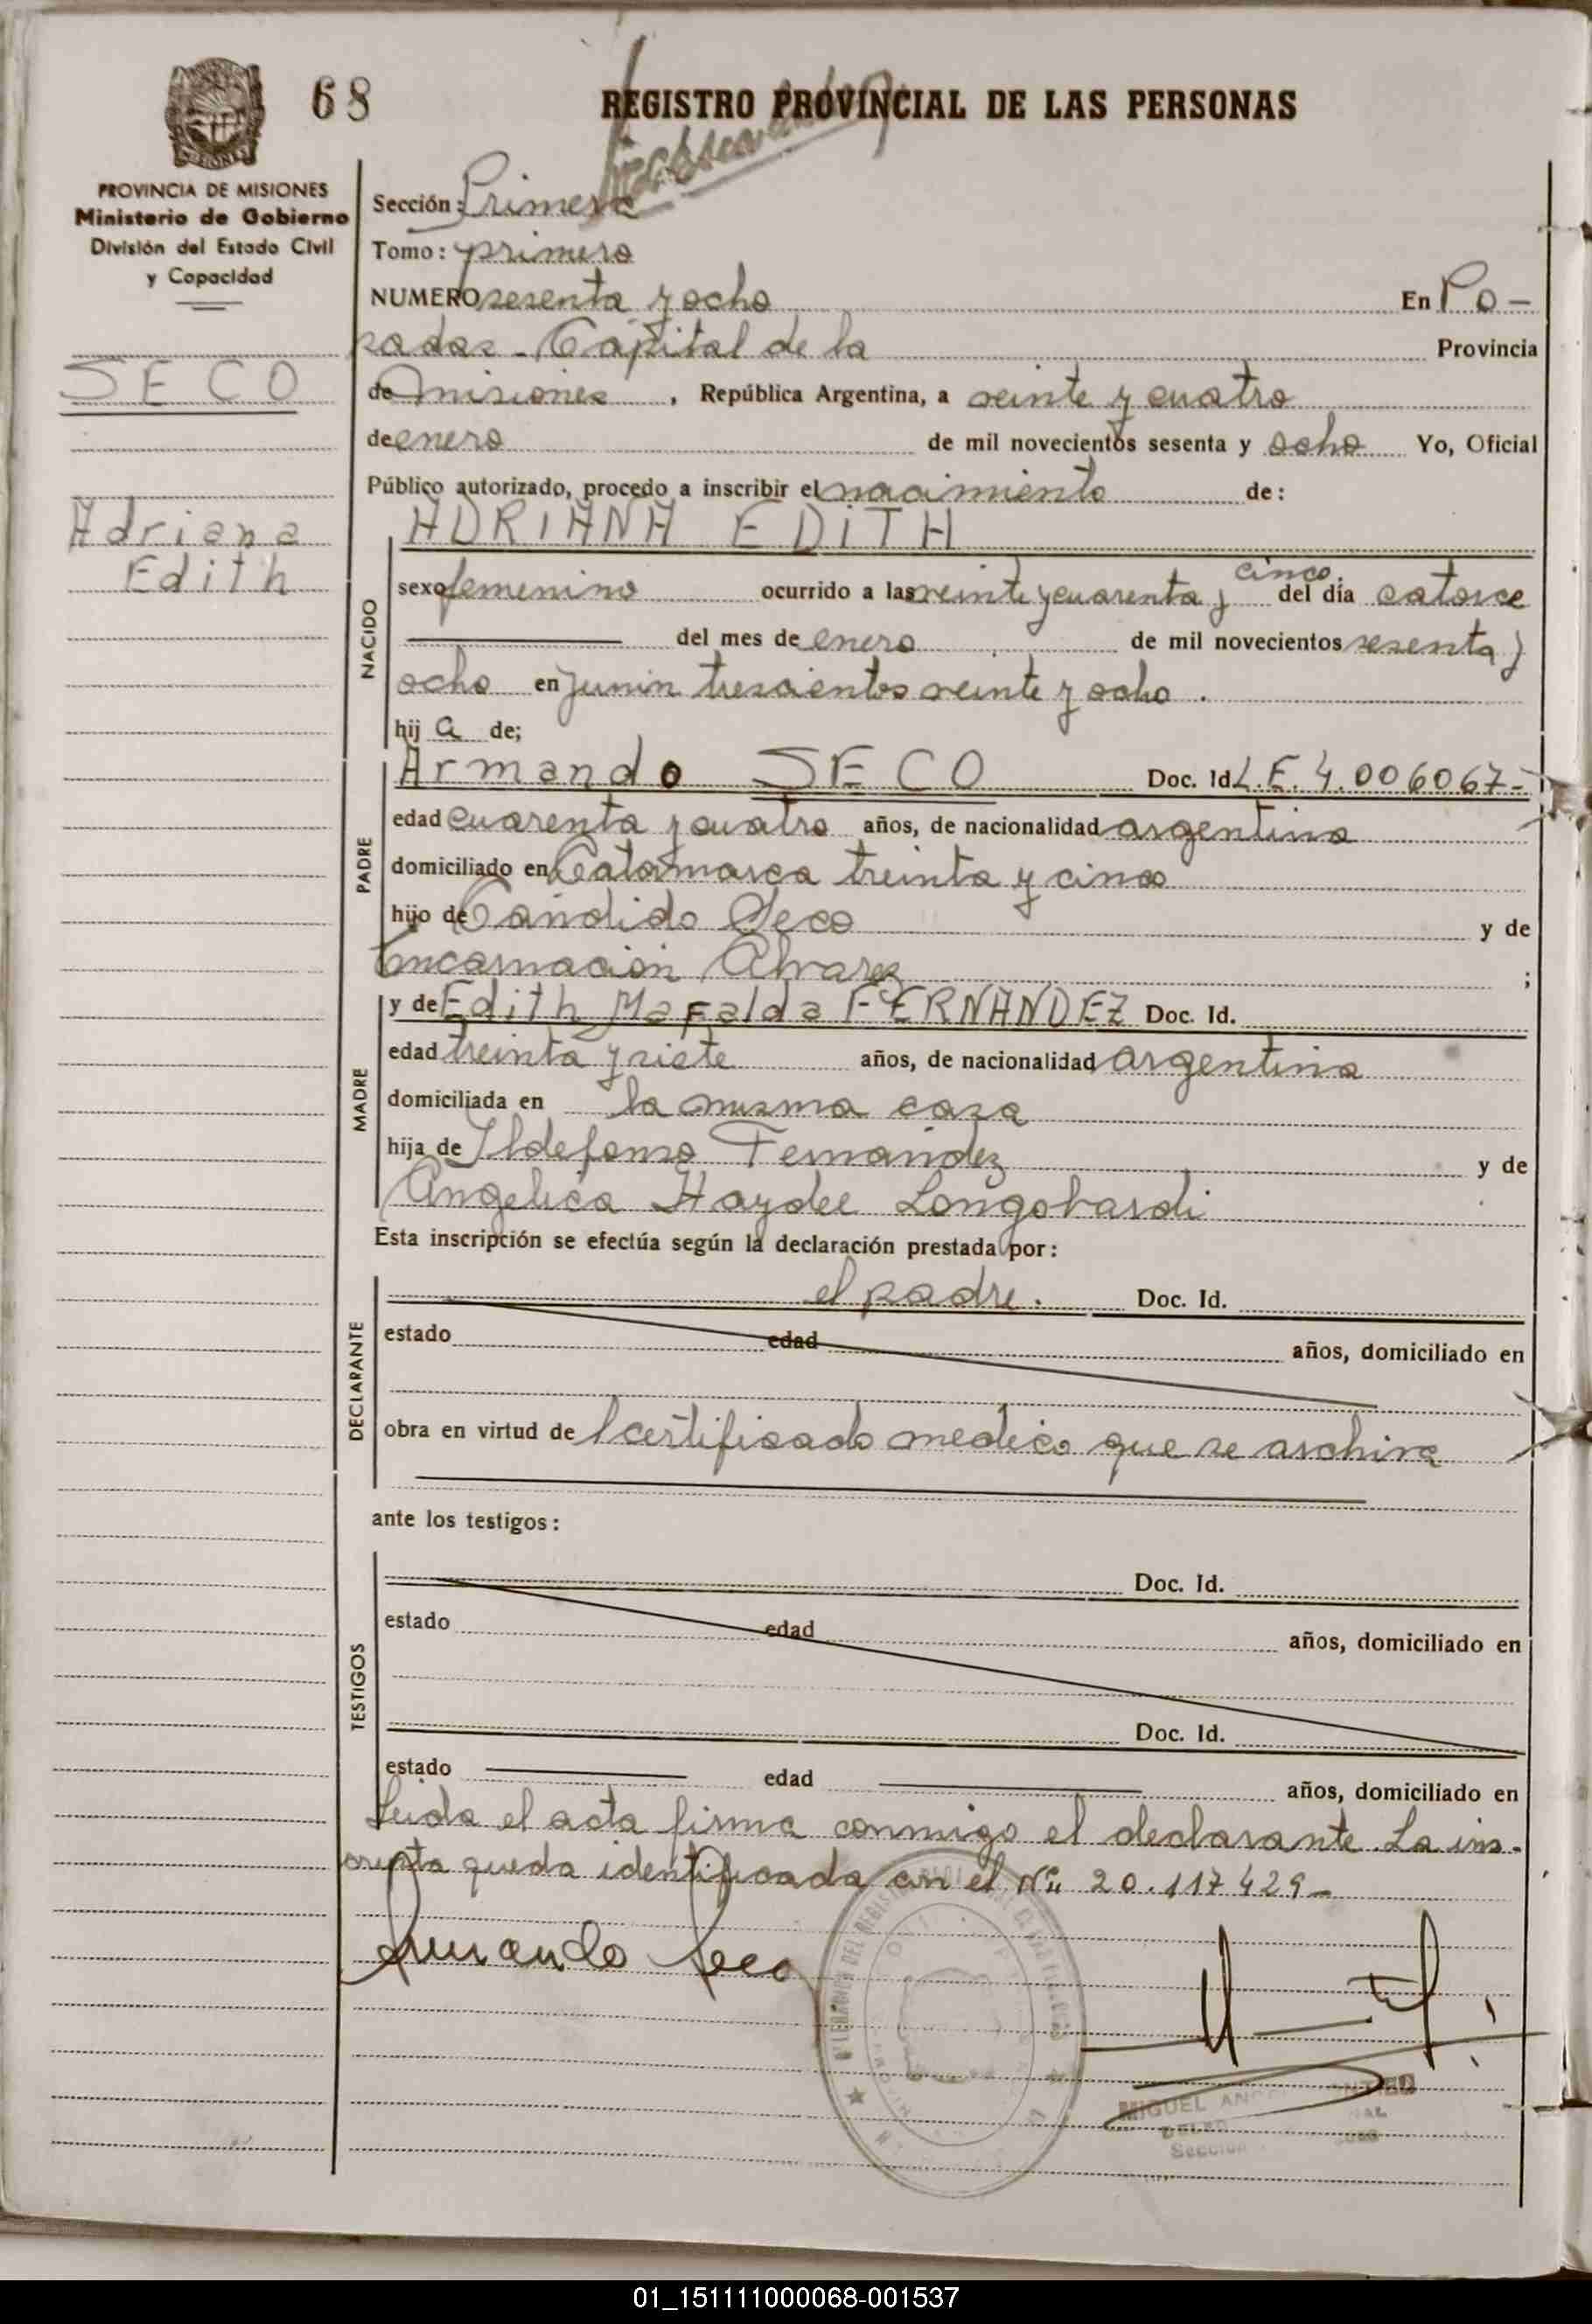 68
REGISTRO PROVINCIAL DE LAS PERSONAS
PROVINCIA DE MISIONES
Ministerio de Gobierno
División del Estado Civil
y Capacidad
SECO
Adriana
Edith
Sección: Primera
Tomo: primero
NUMERO sesenta y ocho En Po-
sadas - Capital de la Provincia
de Misiones, República Argentina, a veinte y cuatro
de enero de mil novecientos sesenta y ocho Yo, Oficial
Público autorizado, procedo a inscribir el nacimiento de:
ADRIANA EDITH
NACIDO
cinco
sexo femenino ocurrido a las veinte y cuarenta y del día catorce
del mes de enero de mil novecientos sesenta y
ocho en Junin trescientos veinte y ocho.
hij a de;
PADRE
Armando SECO Doc. Id. L.E. 4.006067-
edad cuarenta y cuatro años, de nacionalidad argentina
domiciliado en Catamarca treinta y cinco
hijo de Candido Seco y de
Encarnación Alvarez ;
MADRE
y de Edith Mafalda FERNANDEZ Doc. Id.
edad treinta y siete años, de nacionalidad argentina
domiciliada en la misma casa
hija de Ildefonso Fernandez y de
Angelica Haydee Longobardi
Esta inscripción se efectúa según la declaración prestada por:
DECLARANTE
el padre. Doc. Id.
estado edad años, domiciliado en
obra en virtud de l certificado medico que se archiva
ante los testigos:
TESTIGOS
Doc. Id.
estado edad años, domiciliado en
Doc. Id.
estado edad años, domiciliado en
Leida el acta firma conmigo el declarante. La ins-
cripta queda identificada con el Nº 20.117429-
Armando Seco
MIGUEL
Sección
01_151111000068-001537